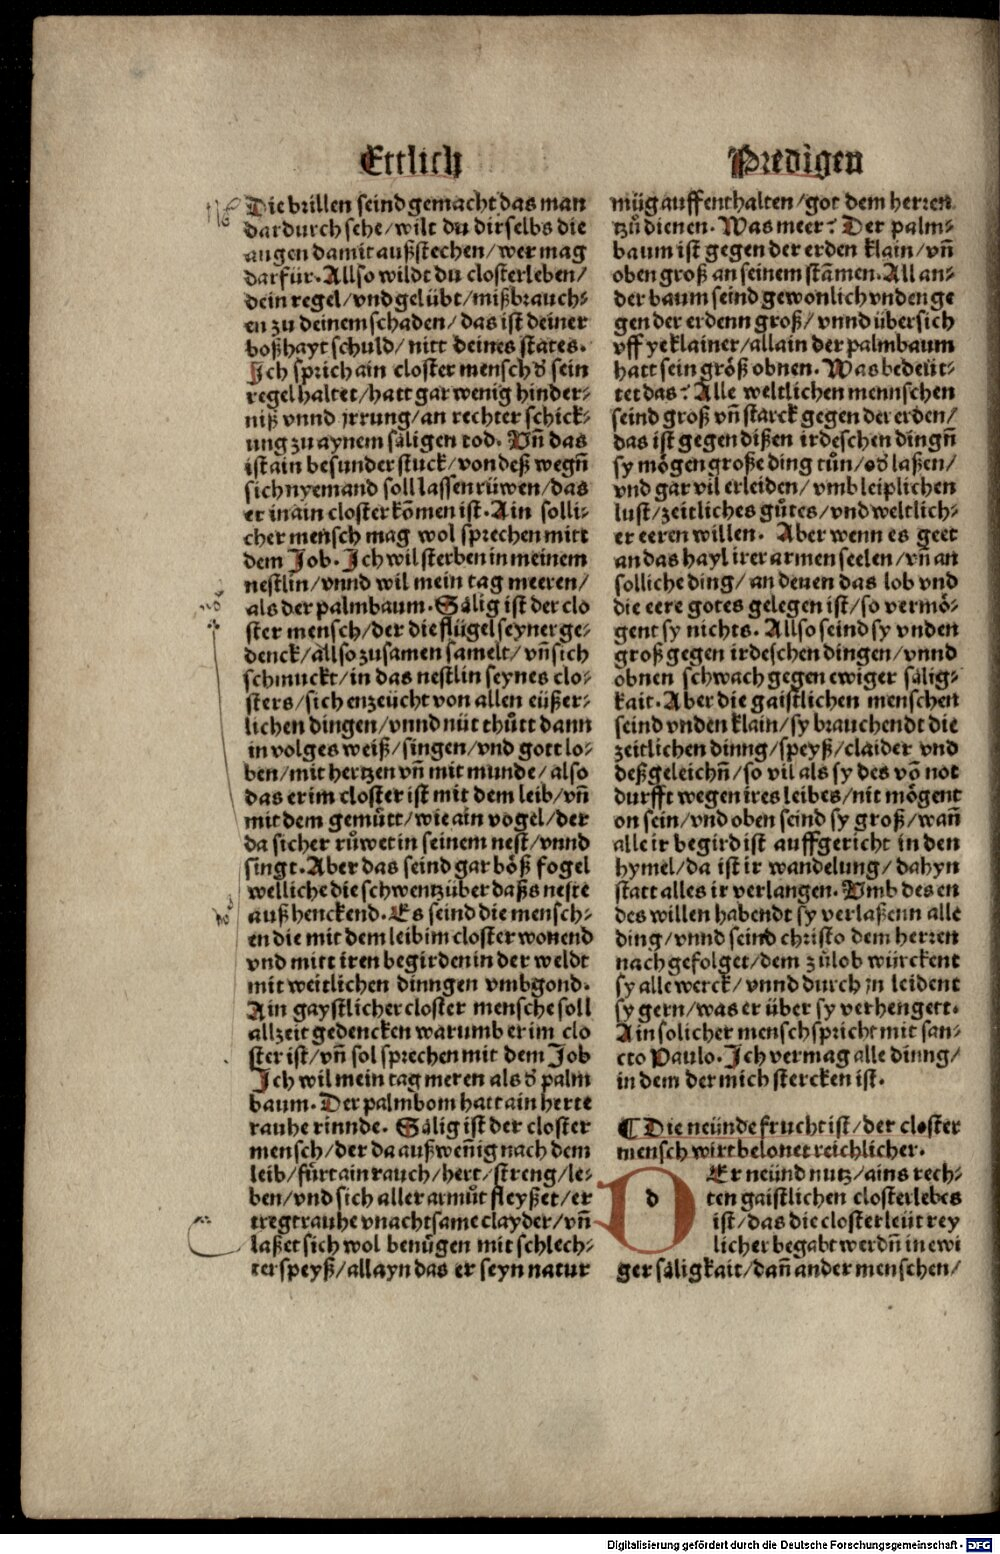 Ettlich
Predigen
Die brillen seind gemacht das man
dardurch sehe/wilt du dir selbs die
augen damit außstechen/wer mag
darfür. Allso wildt du closterleben/
dein regel/vnd gelübt/mißbrauch⸗
en zu deinem schaden/das ist deiner
boßhayt schuld/nitt deines states.
Ich sprich ain closter mensch ð sein
regel haltet/hatt gar wenig hinder⸗
niß vnnd jrrung/an rechter schick⸗
ung zu aynem säligen tod. Vn̄ das
ist ain besunder stuck/von deß wegn̄
sich nyemand soll lassen rüwen/das
er in ain closter kōmen ist. Ain solli⸗
cher mensch mag wol sprechen mitt
dem Job. Ich wil sterben in meinem
nestlin/vnnd wil mein tag meeren/
als der palmbaum. Sälig ist der clo
ster mensch/der die flügel seyner ge⸗
denck/allso zusamen samelt/vn̄ sich
schmuckt/in das nestlin seynes clo⸗
sters/sich enzeücht von allen eüßer⸗
lichen dingen/vnnd nüt thůtt dann
in volges weiß/singen/vnd gott lo⸗
ben/mit hertzen vn̄ mit munde/also
das er im closter ist mit dem leib/vn̄
mit dem gemütt/wie ain vogel/der
da sicher růwet in seinem nest/vnnd
singt. Aber das seind gar böß fogel
welliche die schwentz über daßs neste
auß henckend. Es seind die mensch⸗
en die mit dem leib im closter wonend
vnd mitt iren begirden in der weldt
mit weitlichen dinngen vmbgond.
Ain gaystlicher closter mensche soll
allzeit gedencken warumb er im clo
ster ist/vn̄ sol sprechen mit dem Job
Ich wil mein tag meren als ð palm
baum. Der palmbom hatt ain herte
rauhe rinnde. Sälig ist der closter
mensch/der da außwen̄ig nach dem
leib/fürt ain rauch/hert/streng/le⸗
ben/vnd sich aller armůt fleyßet/er
tregt rauhe vnachtsame clayder/vn̄
laßet sich wol benügen mit schlech⸗
ter speyß/allayn das er seyn natur
müg auffenthalten/got dem herren
zů dienen. Was meer? Der palm⸗
baum ist gegen der erden klain/vn̄
oben groß an seinem stāmen. All an⸗
der baum seind gewonlich vnden ge
gen der erdenn groß/vnnd übersich
vff ye klainer/allain der palmbaum
hatt sein größ obnen. Was bedeüt⸗
tet das? Alle weltlichen mennschen
seind groß vn̄ starck gegen der erden/
das ist gegen dißen irdeschen dingn̄
sy mögen große ding tůn/oð laßen/
vnd gar vil erleiden/vmb leiplichen
lust/zeitliches gůtes/vnd weltlich⸗
er eeren willen. Aber wenn es geet
an das hayl irer armen seelen/vn̄ an
solliche ding/an denen das lob vnd
die eere gotes gelegen ist/so vermö⸗
gent sy nichts. Allso seind sy vnden
groß gegen irdeschen dingen/vnnd
obnen schwach gegen ewiger sälig⸗
kait. Aber die gaistlichen menschen
seind vnden klain/sy brauchendt die
zeitlichen dinng/speyß/claider vnd
deßgeleichn̄/so vil als sy des vō not
durfft wegen ires leibes/nit mögent
on sein/vnd oben seind sy groß/wan̄
alle ir begird ist auffgericht in den
hymel/da ist ir wandelung/dahyn
statt alles ir verlangen. Vmb des en
des willen habendt sy verlaßenn alle
ding/vnnd seind christo dem herren
nachgefolget/dem zůlob würckent
sy alle werck/vnnd durch jn leident
sy gern/was er über sy verhengett.
Ain solicher mensch spricht mit san⸗
cto Paulo. Ich vermag alle dinng/
in dem der mich stercken ist.
¶ Die neünde frucht ist/der closter
mensch wirt belonet reichlicher.
d Er neünd nutz/ains rech⸗
ten gaistlichen closterlebēs
ist/das die closterleüt rey
licher begabt werdn̄ in ewi
ger säligkait/dan̄ ander menschen/
Digitalisierung gefördert durch die Deutsche Forschungsgemeinschaft - DFG